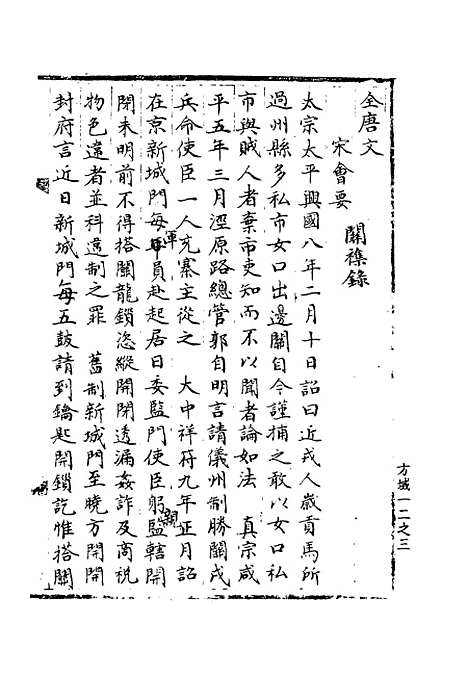 全唐文
宋會要
關襍錄
太宗太平興國八年二月十日詔曰近戎人歲貢馬所
過州縣多私市女口出邊關自今謹捕之敢以女口私
市與賊人者棄市吏知而不以聞者論如法　真宗咸
平五年三月涇原路總管郭自明言請儀州制勝關戍
兵命使臣一人充寨主從之　大中祥符九年正月詔
在京新城門每員赴起居日委監門使臣躬監轄開
軍
親
閉未明前不得搭關龍鎖恣縱開閉透漏姦詐及商稅
物色違者並科違制之罪　舊制新城門至曉方開開
封府言近日新城門每五鼓請到鑰匙開鎖訖惟搭關
方域一二之三